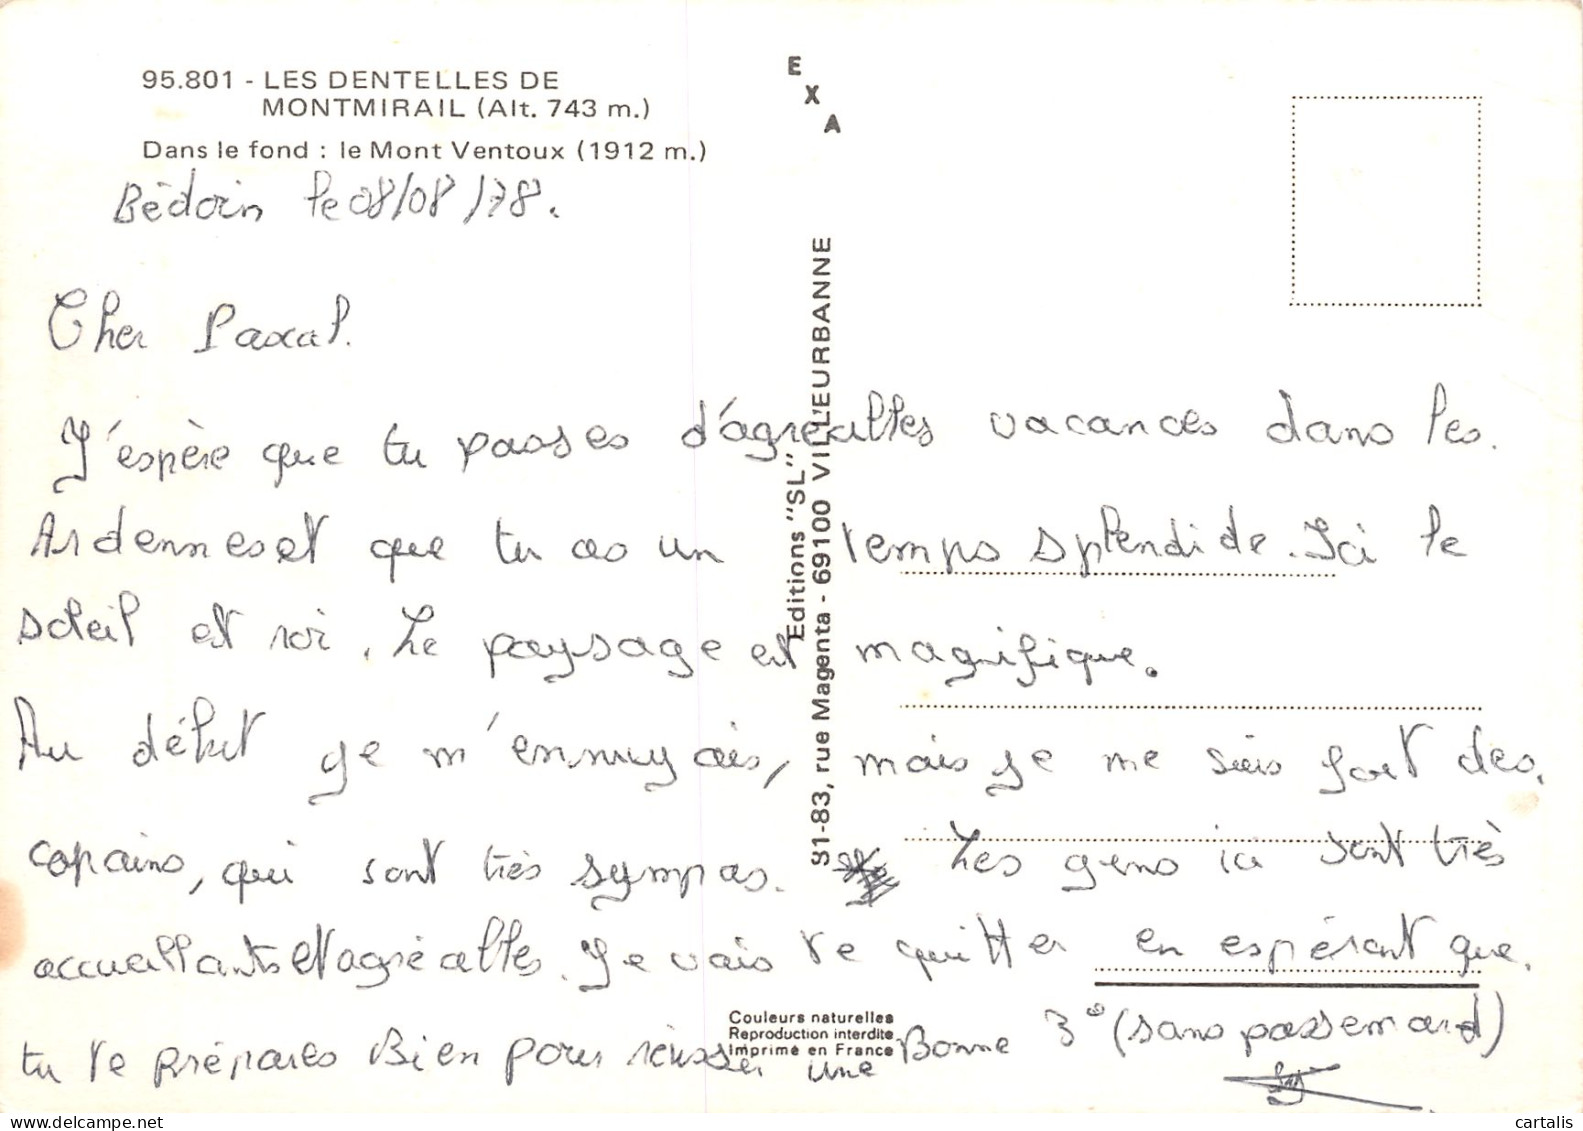 95.801 - LES DENTELLES DE
MONTMIRAIL (Alt. 743 m.)
Dans le fond : le Mont Ventoux (1912 m.)
Bédoin le 08/08/78.
Cher Pascal.
J'espère que tu passes d'agréables vacances dans les.
Ardennes et que tu as un temps splendide. Ici le
soleil et roi. Le paysage est magnifique.
Au début je m'ennuyais, mais je me suis fait des.
copains, qui sont très sympas. Les gens ici sont très
accueillants et agréables. Je vais te quitter en espérant que.
tu te prépares Bien pour réussir une Bonne 3° (sans passemard)
E
X
A
Editions "SL"
81-83, rue Magenta - 69100 VILLEURBANNE
Couleurs naturelles
Reproduction interdite
Imprimé en France
cartalis